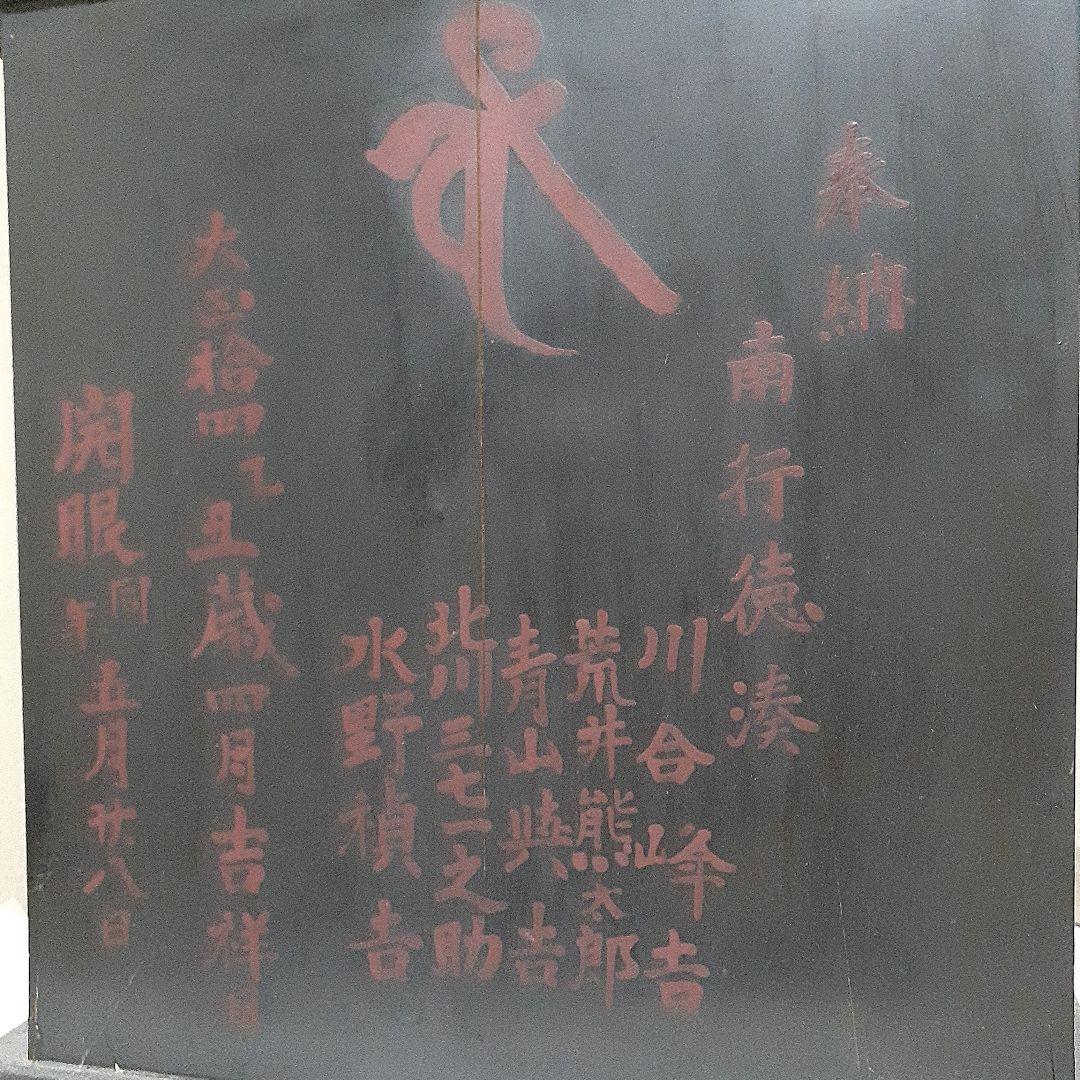 奉納
南行徳湊
川合峰吉
荒井熊太郎
青山吉
北川三七一之助
水野禎吉
大正拾四乙丑歳四月吉祥日
開眼同年五月廿八日